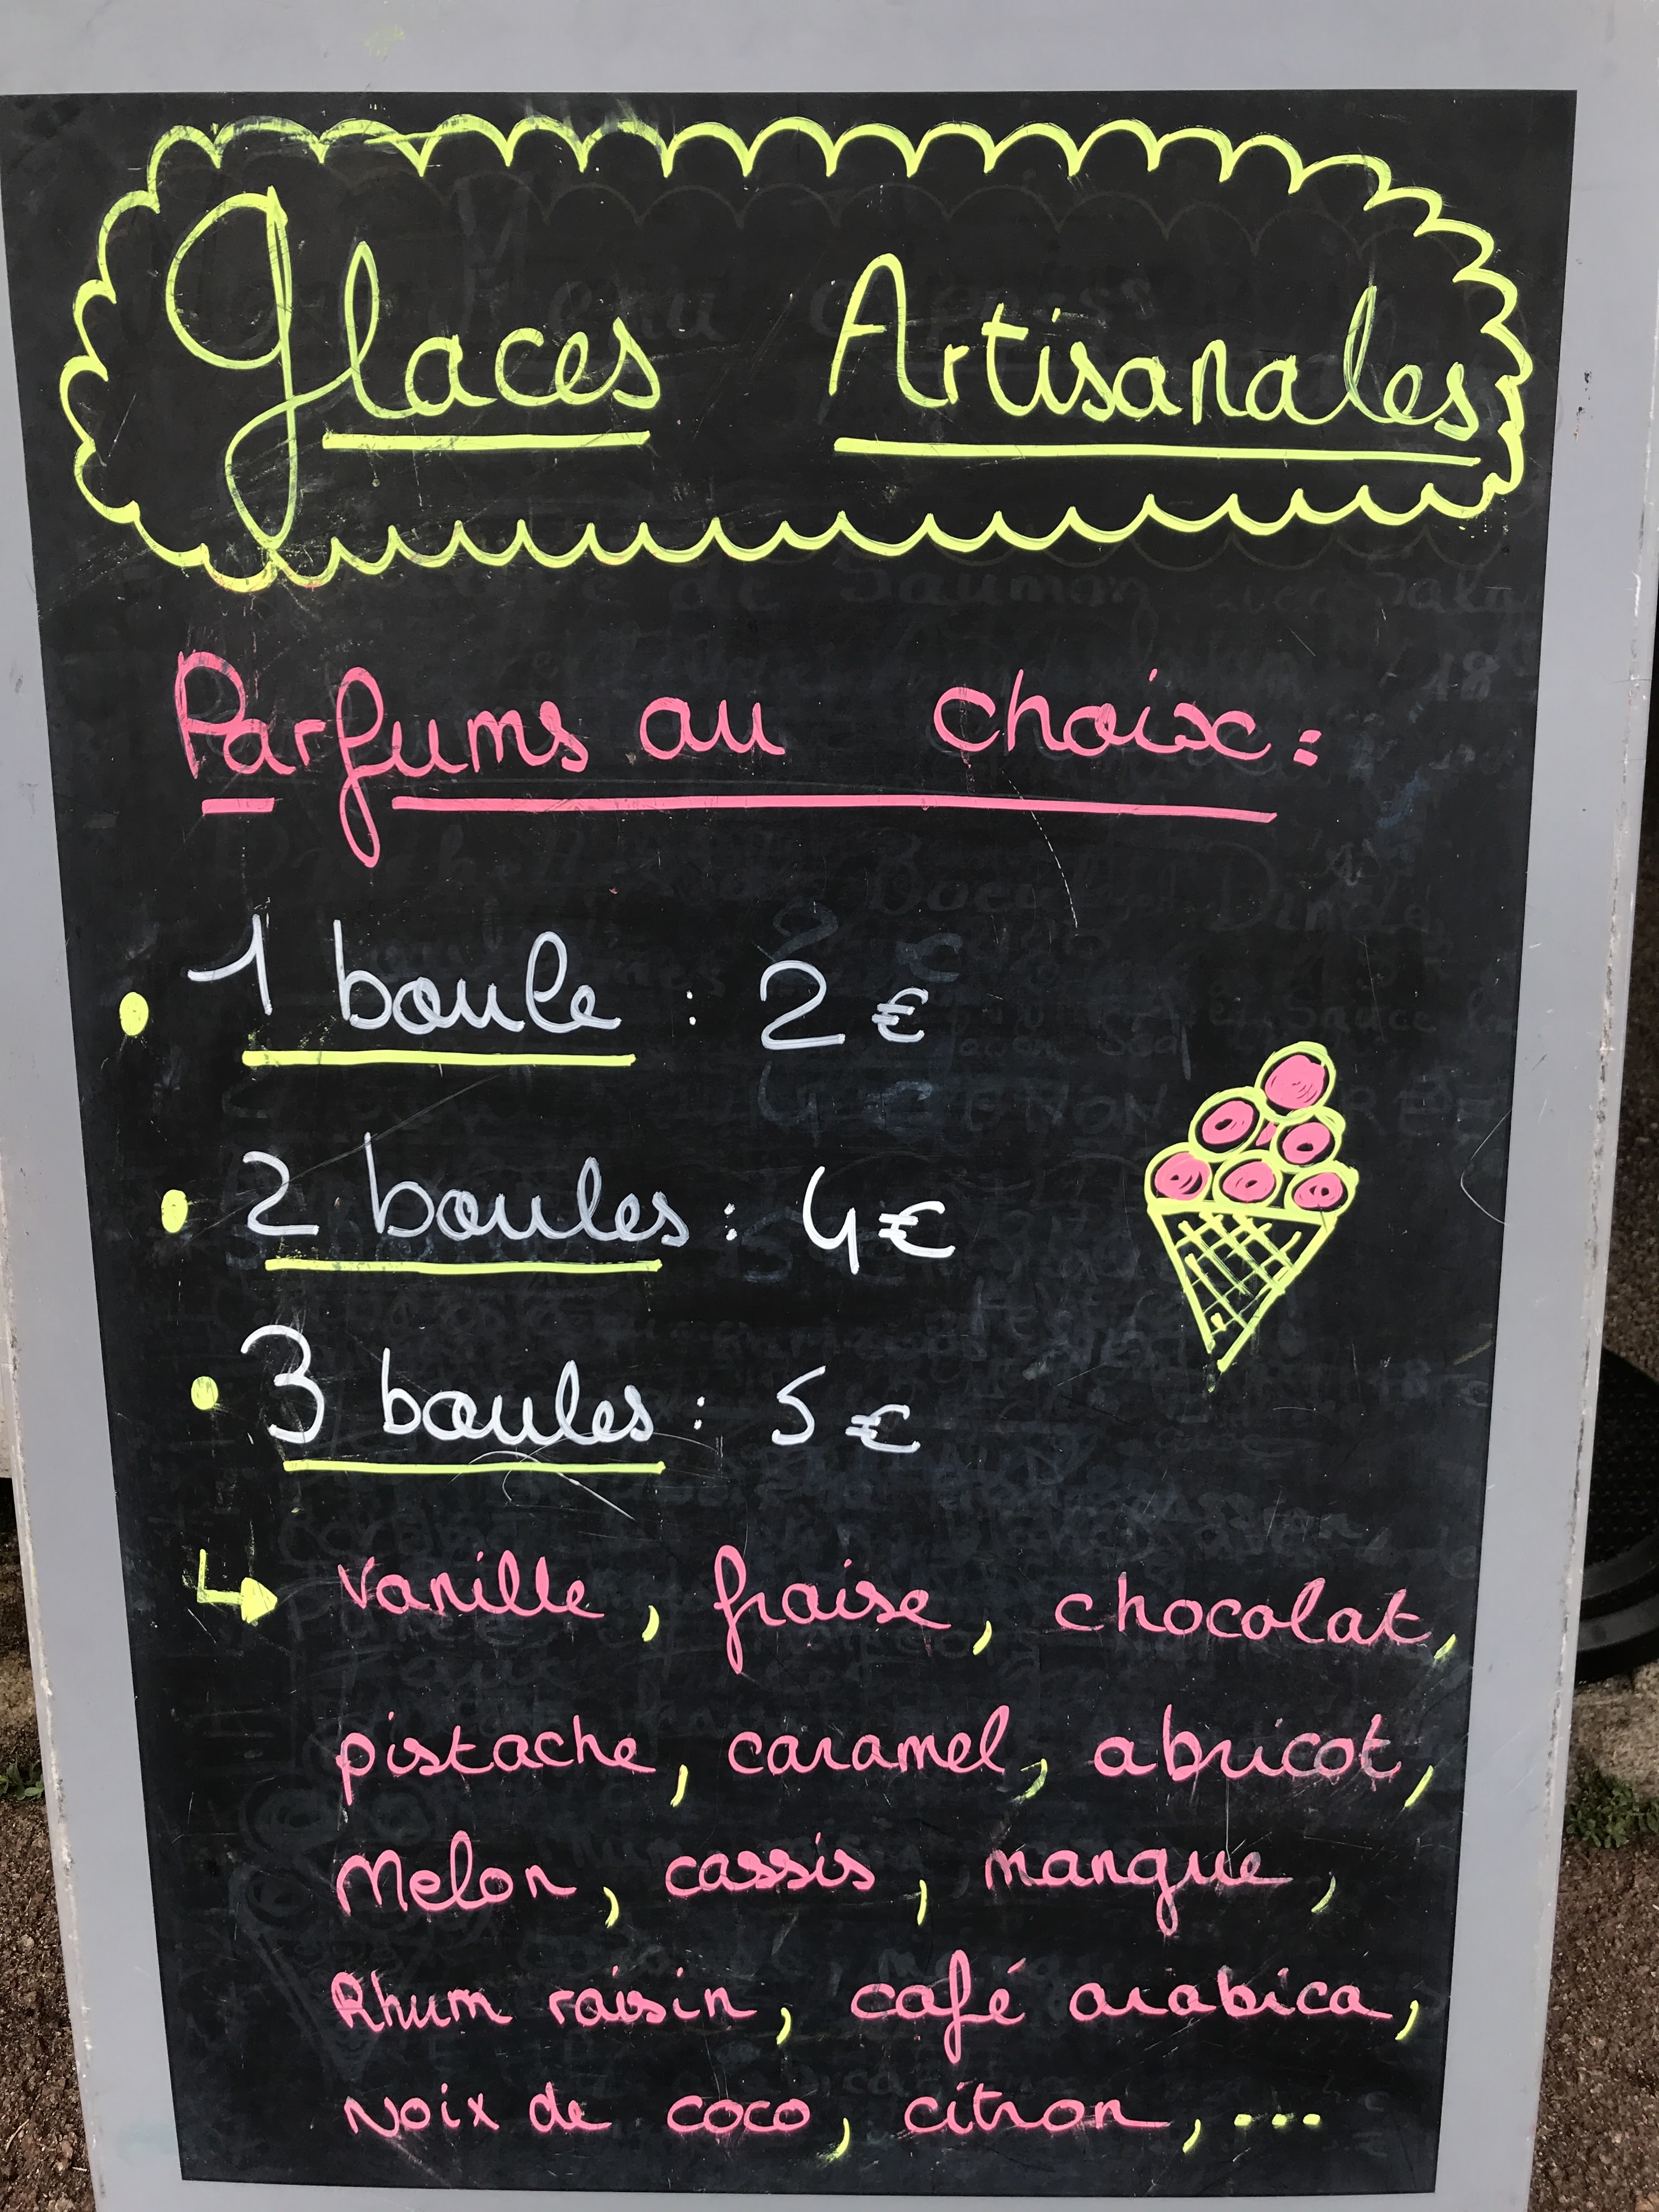 Glaces Artisanales
Parfums au choix :
1 boule : 2 €
2 boules : 4 €
3 boules : 5 €
vanille, fraise, chocolat,
pistache, caramel, abricot,
Melon, cassis, mangue,
Rhum raisin, café arabica,
Noix de coco, citron, ...